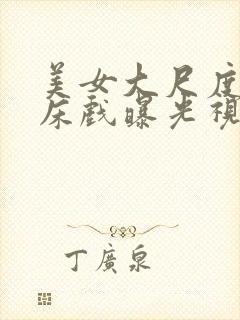 美女大尺度
床戲曝光視
丁廣泉